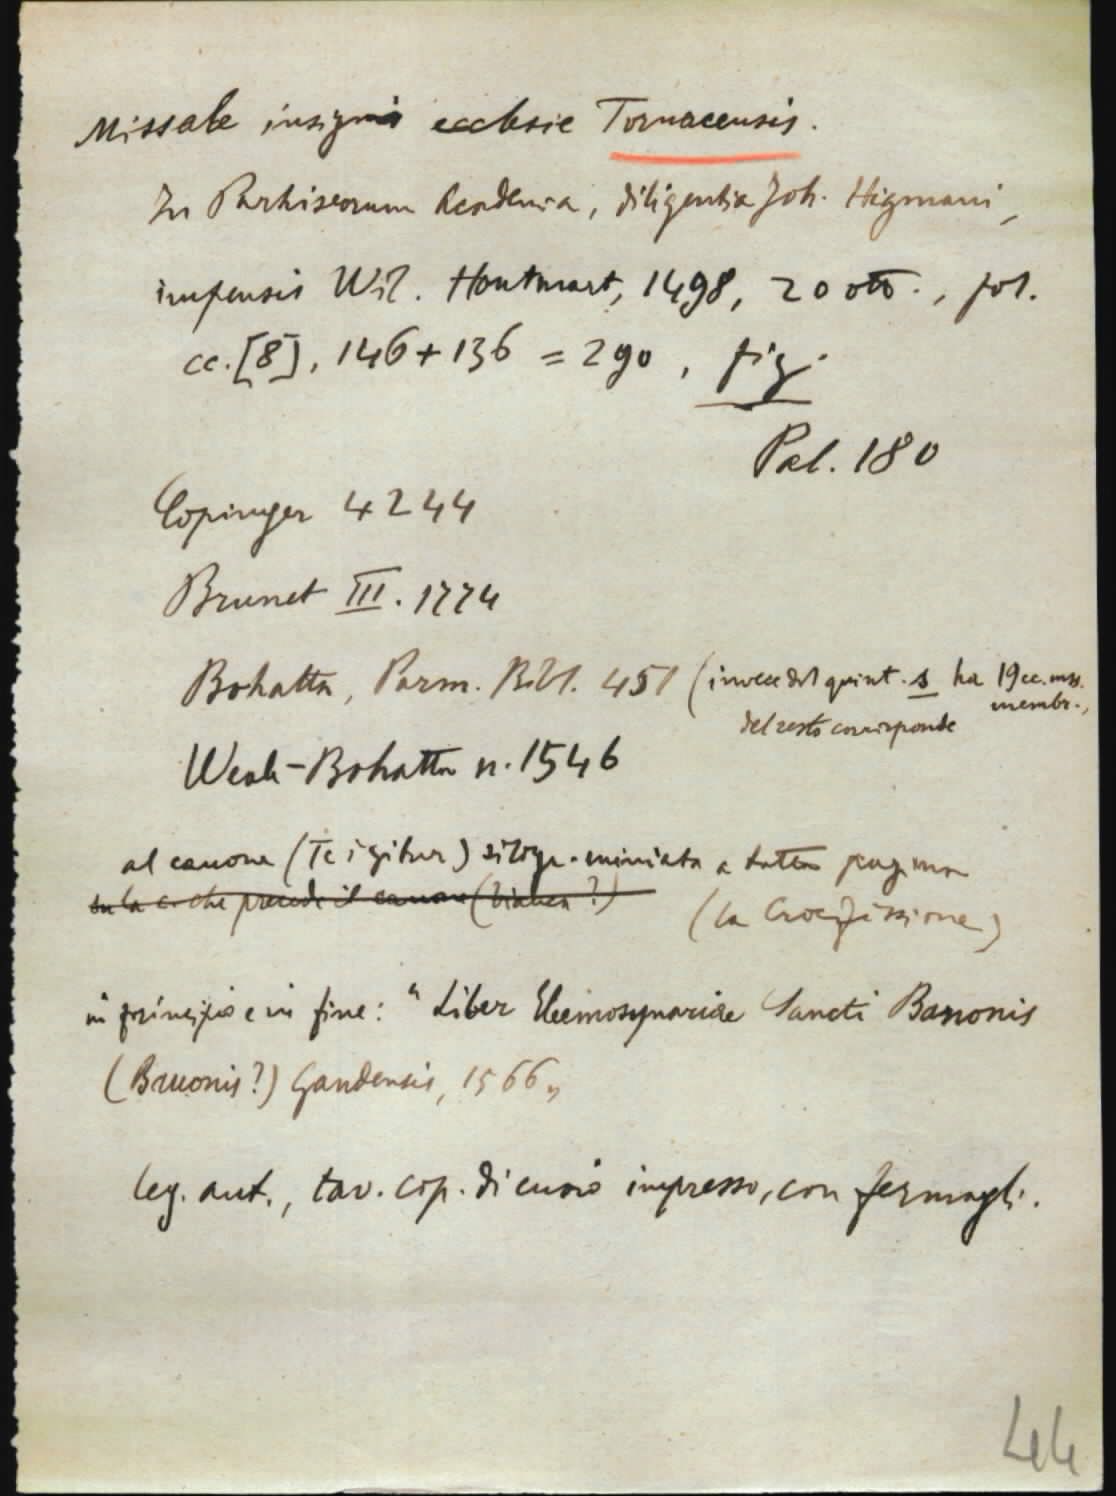 Missale insignis ecclesie Tornacensis.
In Parhiseorum Academia, diligentia Joh. Higmani,
impensis Wil. Houtmart, 1498, 20 ott., fol.
cc. [8], 146 + 136 = 290, fig.
Pal. 180
Copinger 4244
Brunet III. 1774
Bohatta, Parm. Bibl. 451 (invece del quint. s ha 19 cc. mss. membr.,
del resto corrisponde
Weale-Bohatta n. 1546
al canone (Te igitur) silogr. miniata a tutta pagina
sula c. che precede il canone (bianca?)
(la Crocifissione)
in principio e in fine: "Liber Eleemosynariae Sancti Bauonis
(Bruonis?) Gandensis, 1566"
leg. ant., tav. cop. di cuoio impresso, con fermagli.
44